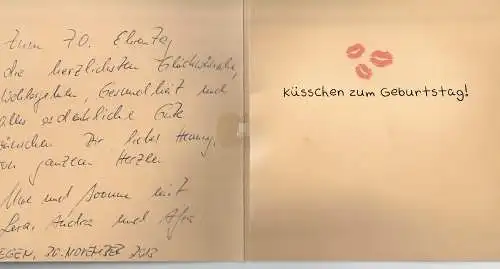 Zum 70. Ehrentag
die herzlichsten Glückwünsche,
Wohlergehen, Gesundheit und
alles erdenkliche Gute
wünschen Dir, lieber Henning,
von ganzem Herzen
und mit
Lara, Andrea und
30. NOVEMBER 2013
Küsschen zum Geburtstag!